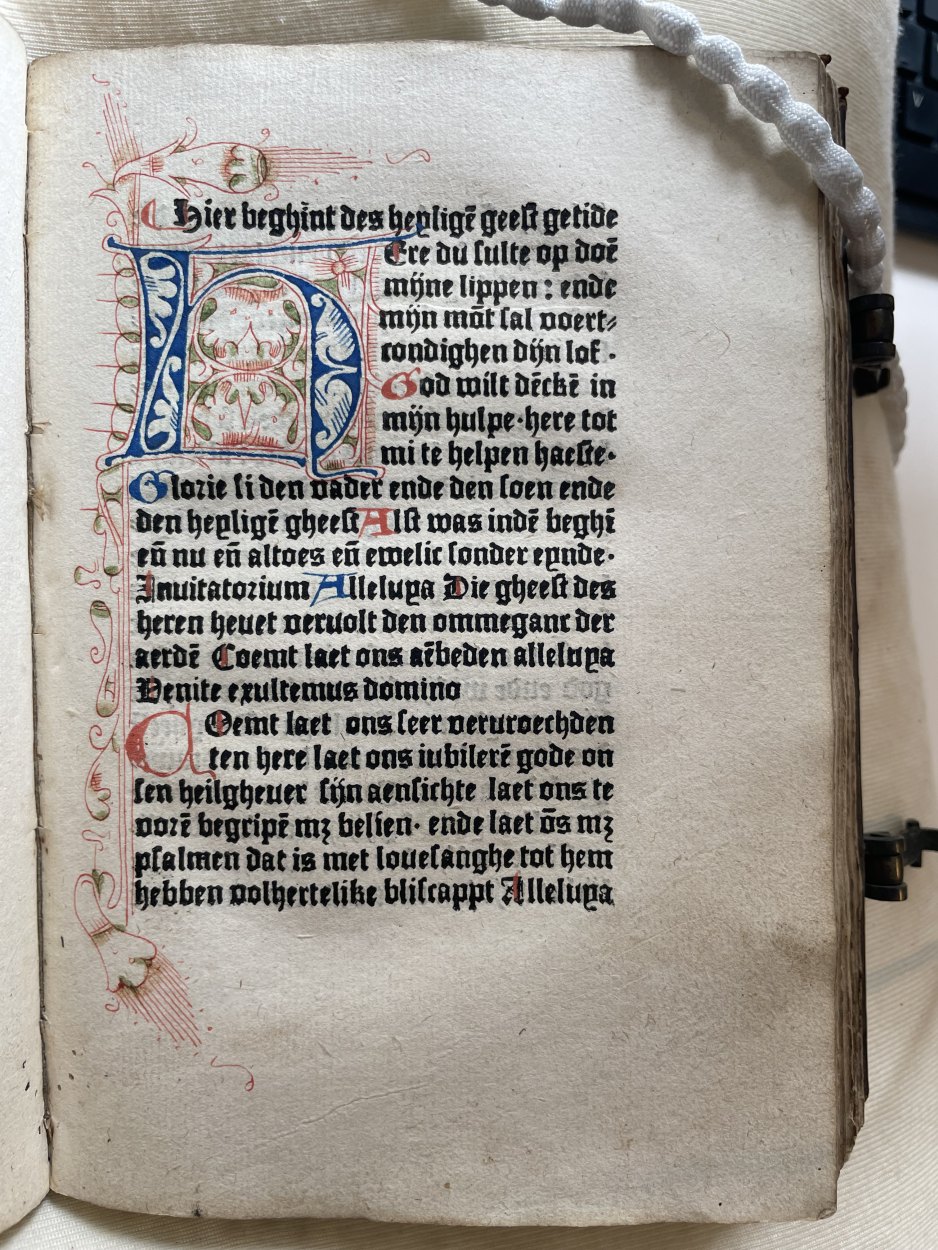 Hier beghint des heyligē geest getide
HEre du sulte op doē
mijne lippen : ende
mijn mōt sal voert⸗
condighen dijn lof ·
God wilt dēckē in
mijn hulpe·here tot
mi te helpen haeste·
Glorie si den vader ende den soen ende
den heyligē gheest Alst was indē beghī
eñ nu eñ altoes eñ ewelic sonder eynde·
Inuitatorium Alleluya Die gheest des
heren heuet veruolt den ommeganc der
aerdē Coemt laet ons aēbeden alleluya
Venite exultemus domino
COemt laet ons seer veruroechden
ten here laet ons iubilerē gode on
sen heilgheuer sijn aensichte laet ons te
vorē begripē mꝫ belien· ende laet ōs mꝫ
psalmen dat is met louesanghe tot hem
hebben volhertelike bliscappt Alleluya